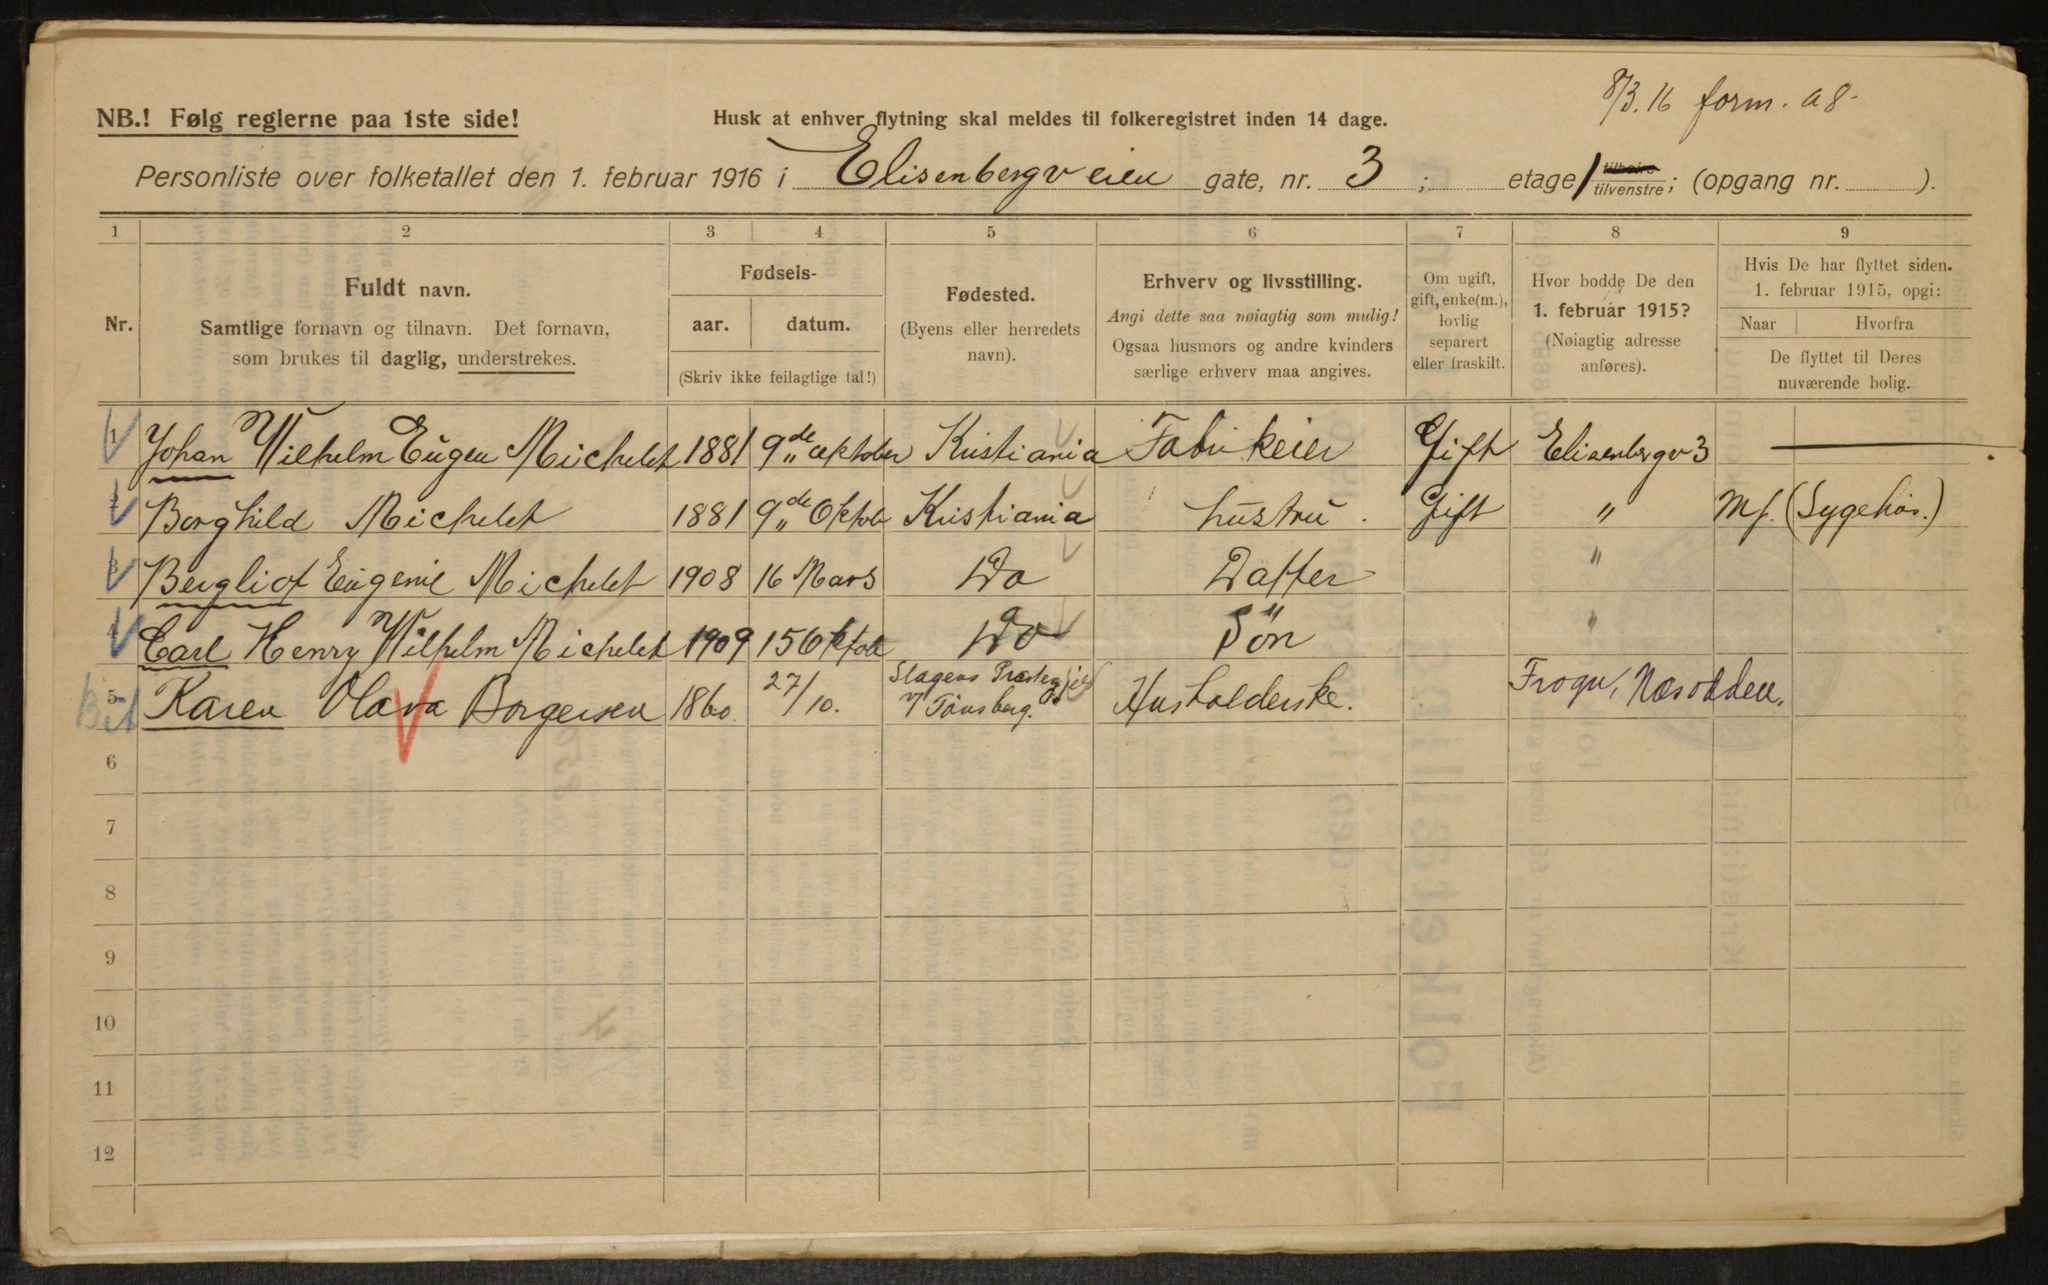 8/3.16 form. A8.
NB.! Følg reglerne paa 1ste side!
Husk at enhver flytning skal meldes til folkeregistret inden 14 dage.
Personliste over folketallet den 1. februar 1916 i Elisenbergveien gate, nr. 3 ; etage tilhøire tilvenstre; (opgang nr. ).
1 2 3 4 5 6 7 8 9
Nr.
Fuldt navn.
Samtlige fornavn og tilnavn. Det fornavn,
som brukes til daglig, understrekes.
Fødsels-
aar. datum.
(Skriv ikke feilagtige tal!)
Fødested.
(Byens eller herredets
navn).
Erhverv og livsstilling.
Angi dette saa nøiagtig som mulig!
Ogsaa husmors og andre kvinders
særlige erhverv maa angives.
Om ugift,
gift, enke(m.),
lovlig
separert
eller fraskilt.
Hvor bodde De den
1. februar 1915?
(Nøiagtig adresse
anføres).
Hvis De har flyttet siden
1. februar 1915, opgi:
Naar Hvorfra
De flyttet til Deres
nuværende bolig.
1 Johan Wilhelm Eugen Michelet 1881 9de oktober Kristiania Fabrikeier Gift Elisenbergv 3 —
2 Borghild Michelet 1881 9de Oktob Kristiania hustru. Gift " Mf. (Sygehus.)
3 Bergliot Eugenie Michelet 1908 16 Mars Do Datter "
4 Carl Henry Wilhelm Michelet 1909 15 Oktob Do Sön "
5 Karen Olava Borgersen 1860. 27/10. Slagens Præstegjel
v/ Tönsberg. Husholderske. Frogn, Næsodden.
6
7
8
9
10
11
12